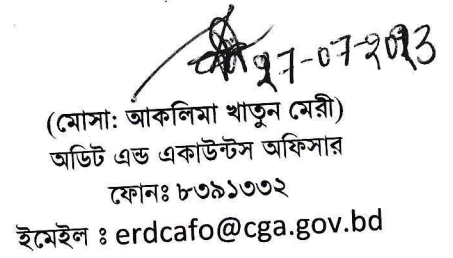 27-07-2023
(মোসা: আকলিমা খাতুন মেরী)
অডিট এন্ড একাউন্টস অফিসার
ফোনঃ ৮৩৯১৩৩২
ইমেইল ঃ erdcafo@cga.gov.bd